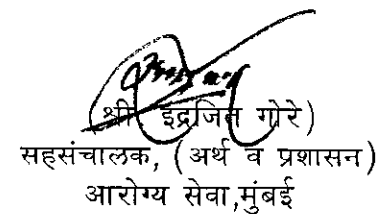 (श्री इंद्रजित गोरे)
सहसंचालक, (अर्थ व प्रशासन)
आरोग्य सेवा,मुंबई